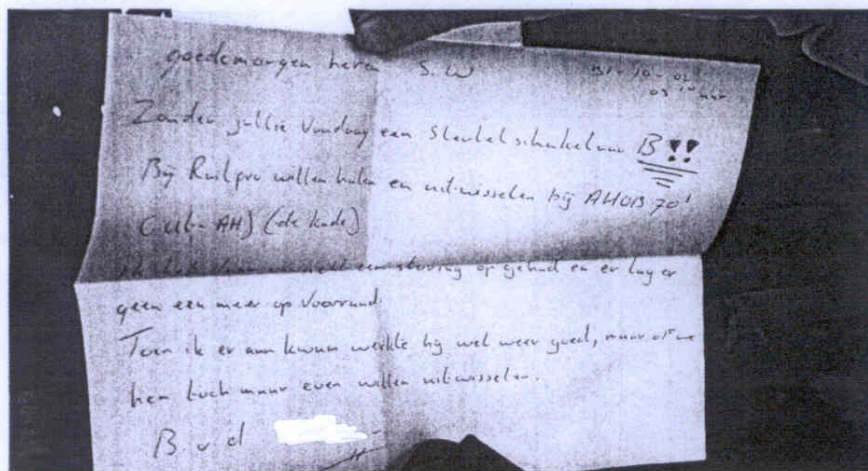 goedemorgen heren S.W 31-10-02
03 10 uur
Zouden jullie vandaag een Sleutelschakelaar B !!
Bij Railpro willen halen en uitwisselen bij AHOB 70'
AH) (de kade)
een storing op gehad en er lag er
geen een meer op Voorraad.
Toen ik er aan kwam werkte hij wel weer goed, maar of we
hem toch maar even willen uitwisselen.
B. v d